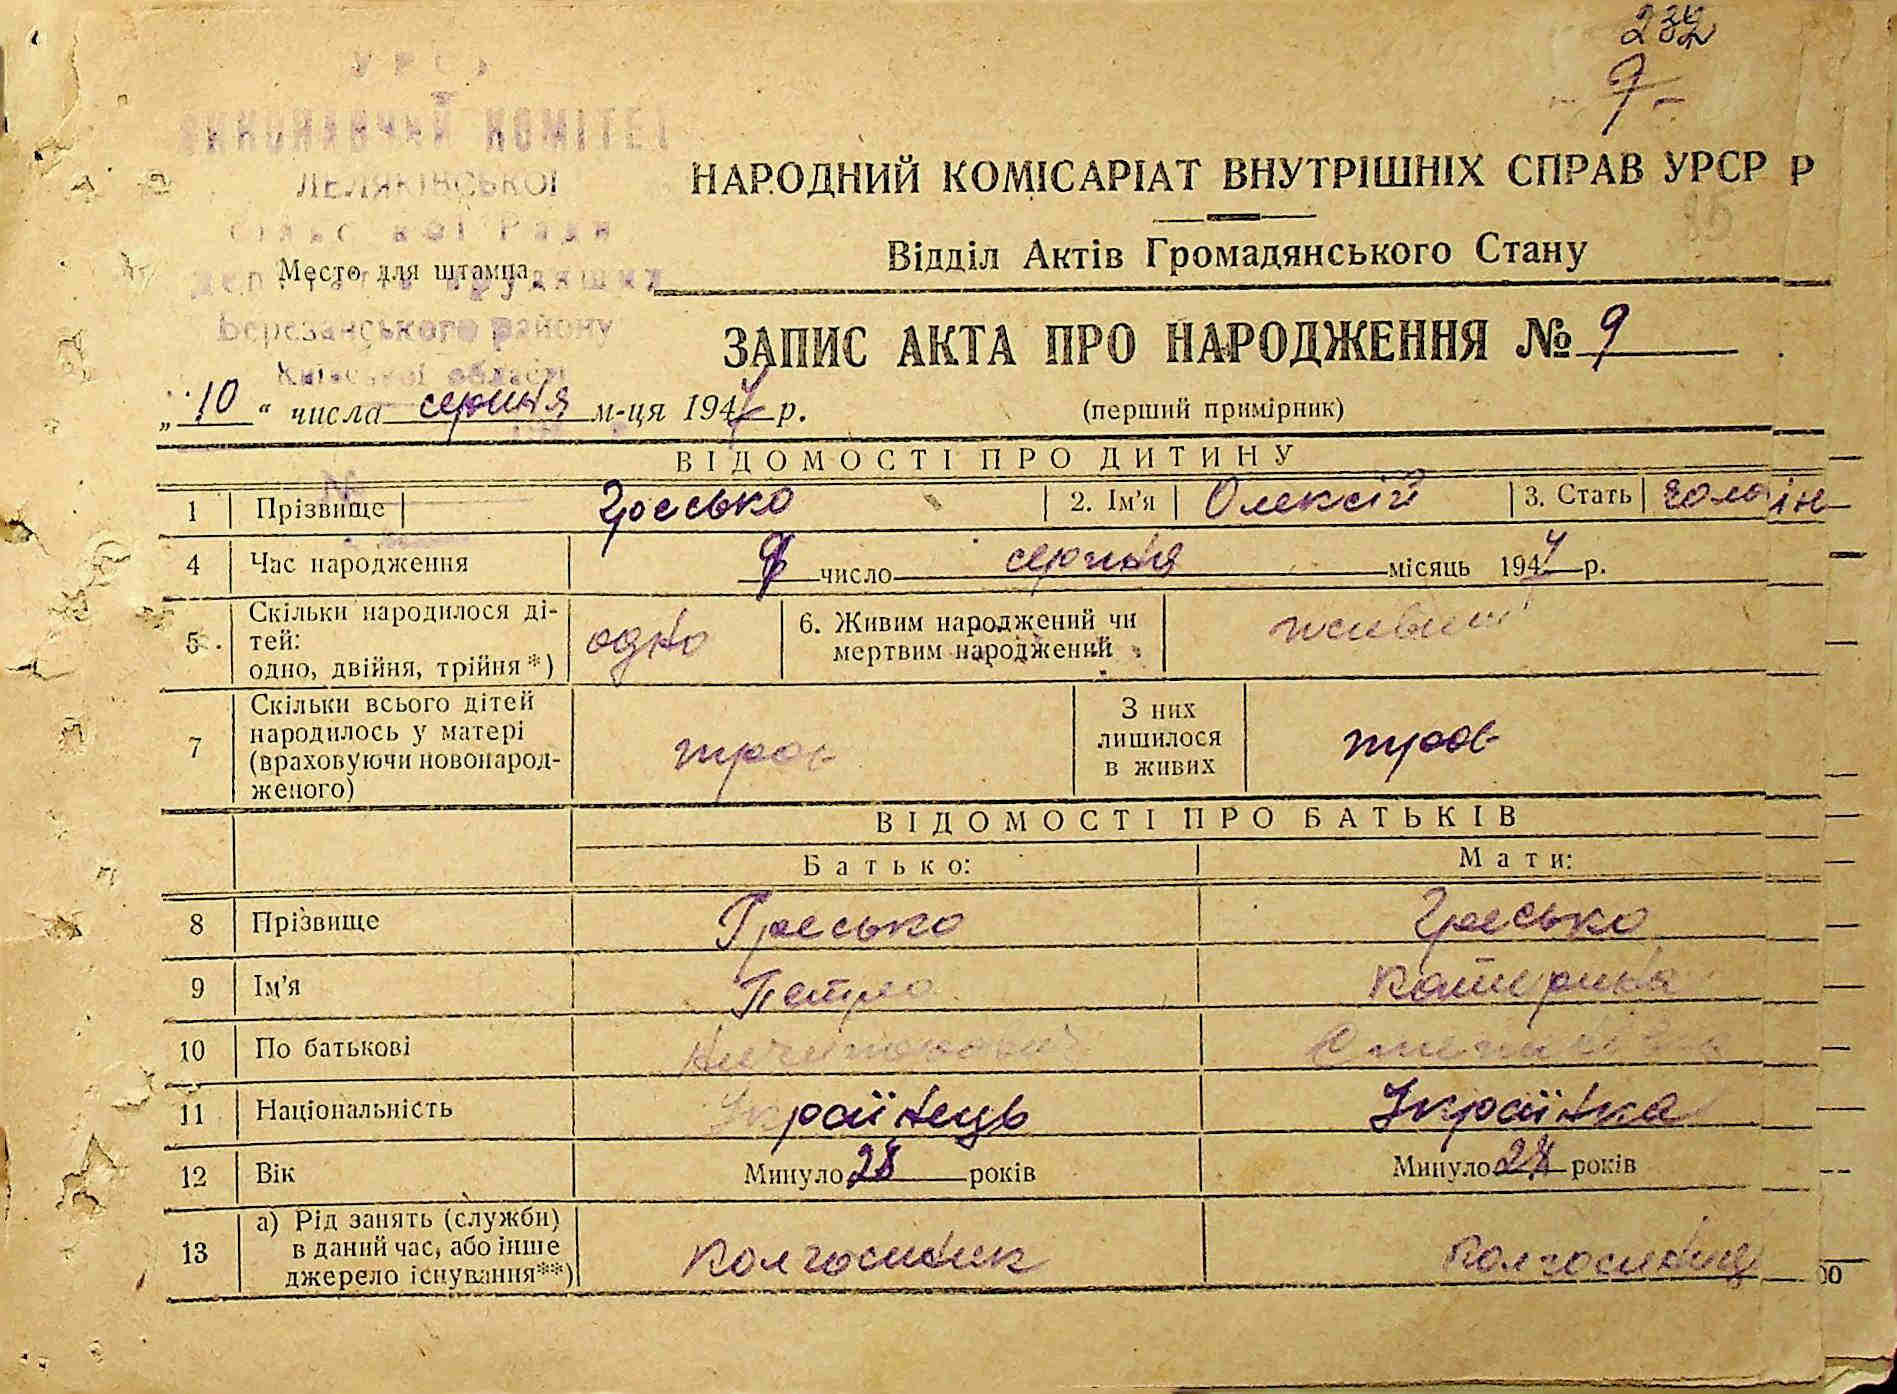 232
- 9 -
УРСР
ВИКОНАВЧИЙ КОМІТЕТ
ЛЕЛЯКІВСЬКОЇ
сільської Ради
депутатів трудящих
Березанського району
Київської області
№
НАРОДНИЙ КОМІСАРІАТ ВНУТРІШНІХ СПРАВ УРСР Р
15
Відділ Актів Громадянського Стану
Место для штампа
ЗАПИС АКТА ПРО НАРОДЖЕННЯ № 9
„10“ числа серпня м-ця 1947 р.
(перший примірник)
ВІДОМОСТІ ПРО ДИТИНУ
1 Прізвище Гресько 2. Ім'я Олексій 3. Стать
4 Час народження число серпня місяць 1947 р.
5 Скільки народилося дітей: одно, двійня, трійня *) одно 6. Живим народжений чи мертвим народжений живим
7 Скільки всього дітей народилось у матері (враховуючи новонародженого) троє З них лишилося в живих троє
ВІДОМОСТІ ПРО БАТЬКІВ
Батько: Мати:
8 Прізвище Гресько Гресько
9 Ім'я Петро Катерина
10 По батькові
11 Національність Українець Українка
12 Вік Минуло 28 років Минуло років
13 а) Рід занять (служби) в даний час, або інше джерело існування**) Колгоспник Колгоспниц
00